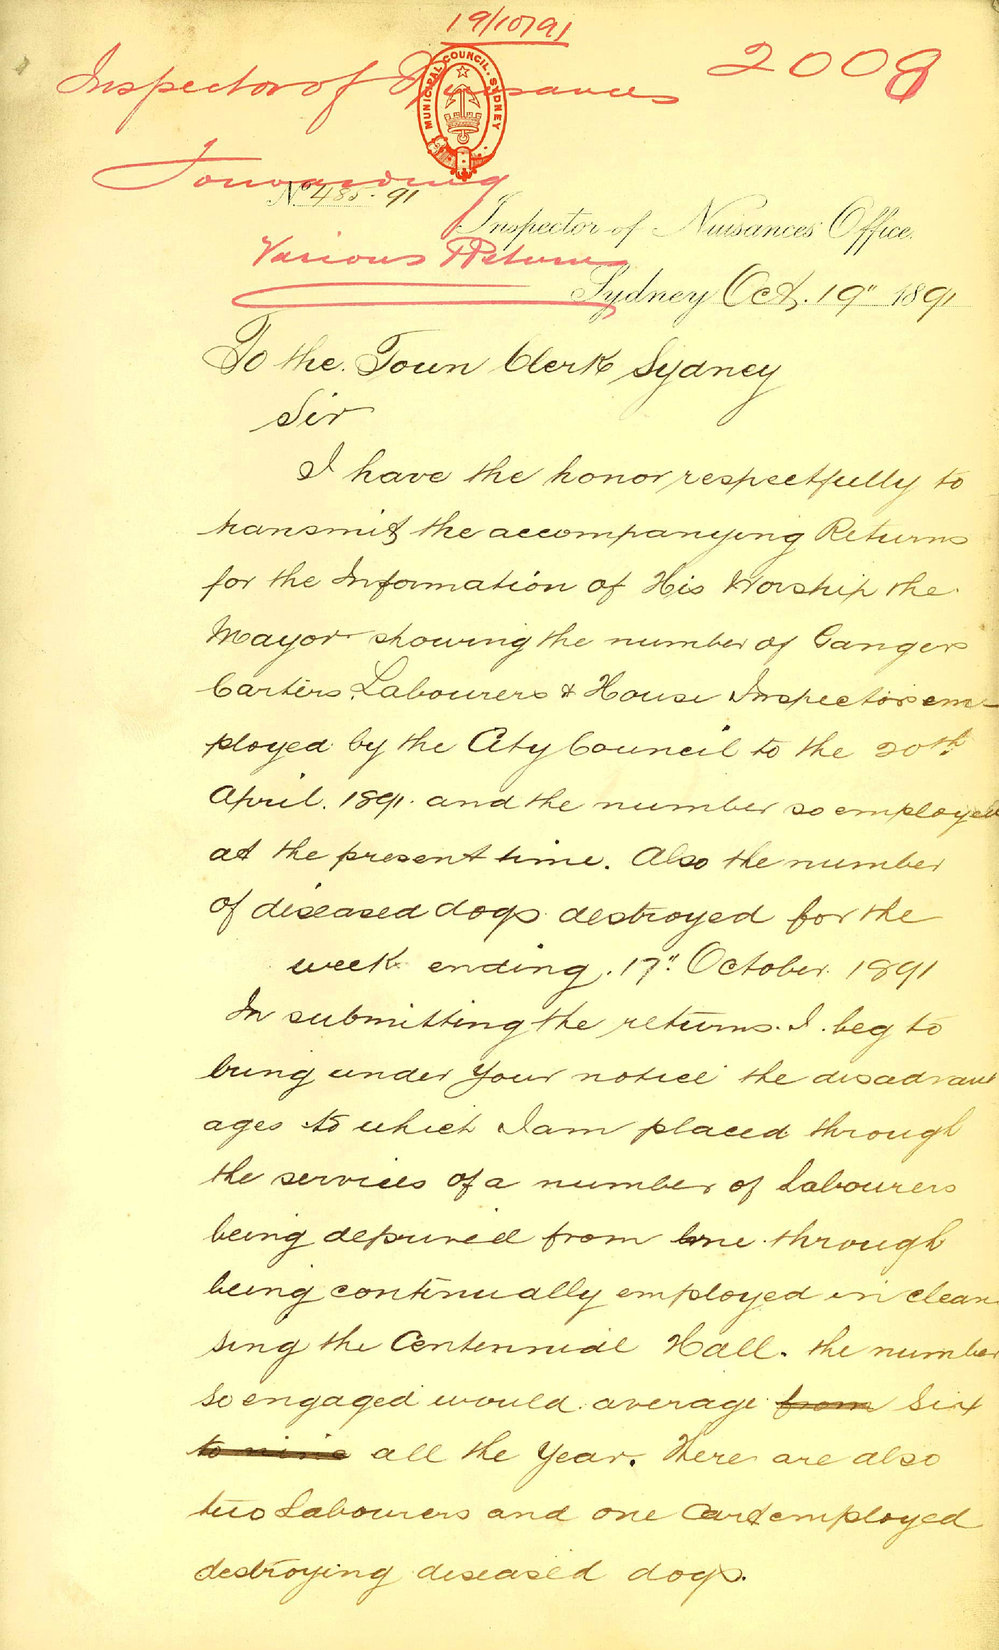 19/10/91
Inspector of Nuisances 2008
MUNICIPAL COUNCIL. SYDNEY
Forwarding
No 485-91
Inspector of Nuisances Office
Various Returns
Sydney Oct. 19" 1891
To the. Town Clerk Sydney
Sir
I have the honor respectfully to
transmit the accompanying Returns
for the Information of His Worship the
Mayor showing the number of Gangers
Carters, Labourers & House Inspectors em-
ployed by the City Council to the 20th
April. 1891. and the number so employed
at the present time. Also the number
of diseased dogs destroyed for the
week ending. 17". October. 1891
In submitting the returns. I. beg to
bring under your notice the disadvant
ages to which I am placed through
the services of a number of Labourers
being deprived from me through
being continually employed in clean
sing the Centennial Hall. the number
so engaged would average from Six
to nine all the Year. There are also
two Labourers and one Cart employed
destroying diseased dogs.